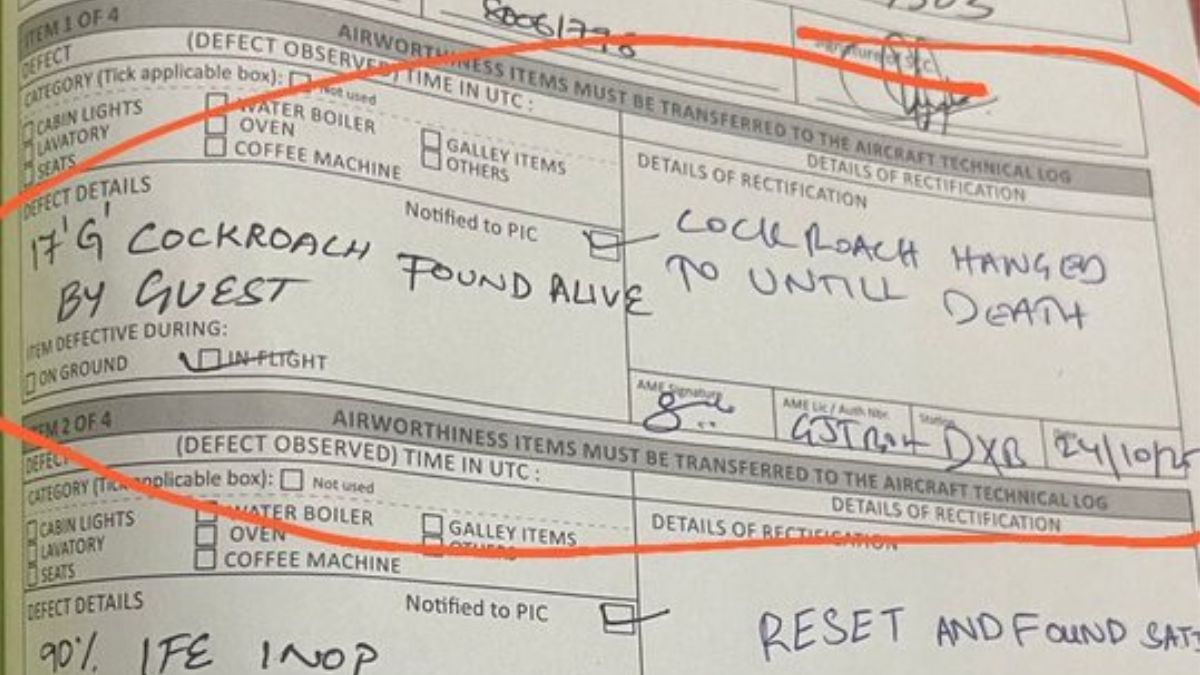 80061796
Signature of SCC
ITEM 1 OF 4 AIRWORTHINESS ITEMS MUST BE TRANSFERRED TO THE AIRCRAFT TECHNICAL LOG
DEFECT (DEFECT OBSERVED) TIME IN UTC : DETAILS OF RECTIFICATION
CATEGORY (Tick applicable box): Not used DETAILS OF RECTIFICATION
CABIN LIGHTS WATER BOILER GALLEY ITEMS
LAVATORY OVEN OTHERS
SEATS COFFEE MACHINE
DEFECT DETAILS Notified to PIC
17'G' COCKROACH FOUND ALIVE
BY GUEST
COCKROACH HANGED
TO UNTILL DEATH
ITEM DEFECTIVE DURING:
ON GROUND IN-FLIGHT
AME Signature AME Lic / Auth Nbr. Station Date
DXB 24/10/25
ITEM 2 OF 4 AIRWORTHINESS ITEMS MUST BE TRANSFERRED TO THE AIRCRAFT TECHNICAL LOG
DEFECT (DEFECT OBSERVED) TIME IN UTC : DETAILS OF RECTIFICATION
CATEGORY (Tick applicable box): Not used DETAILS OF RECTIFICATION
CABIN LIGHTS WATER BOILER GALLEY ITEMS
LAVATORY OVEN OTHERS
SEATS COFFEE MACHINE
DEFECT DETAILS Notified to PIC
90% IFE INOP
RESET AND FOUND